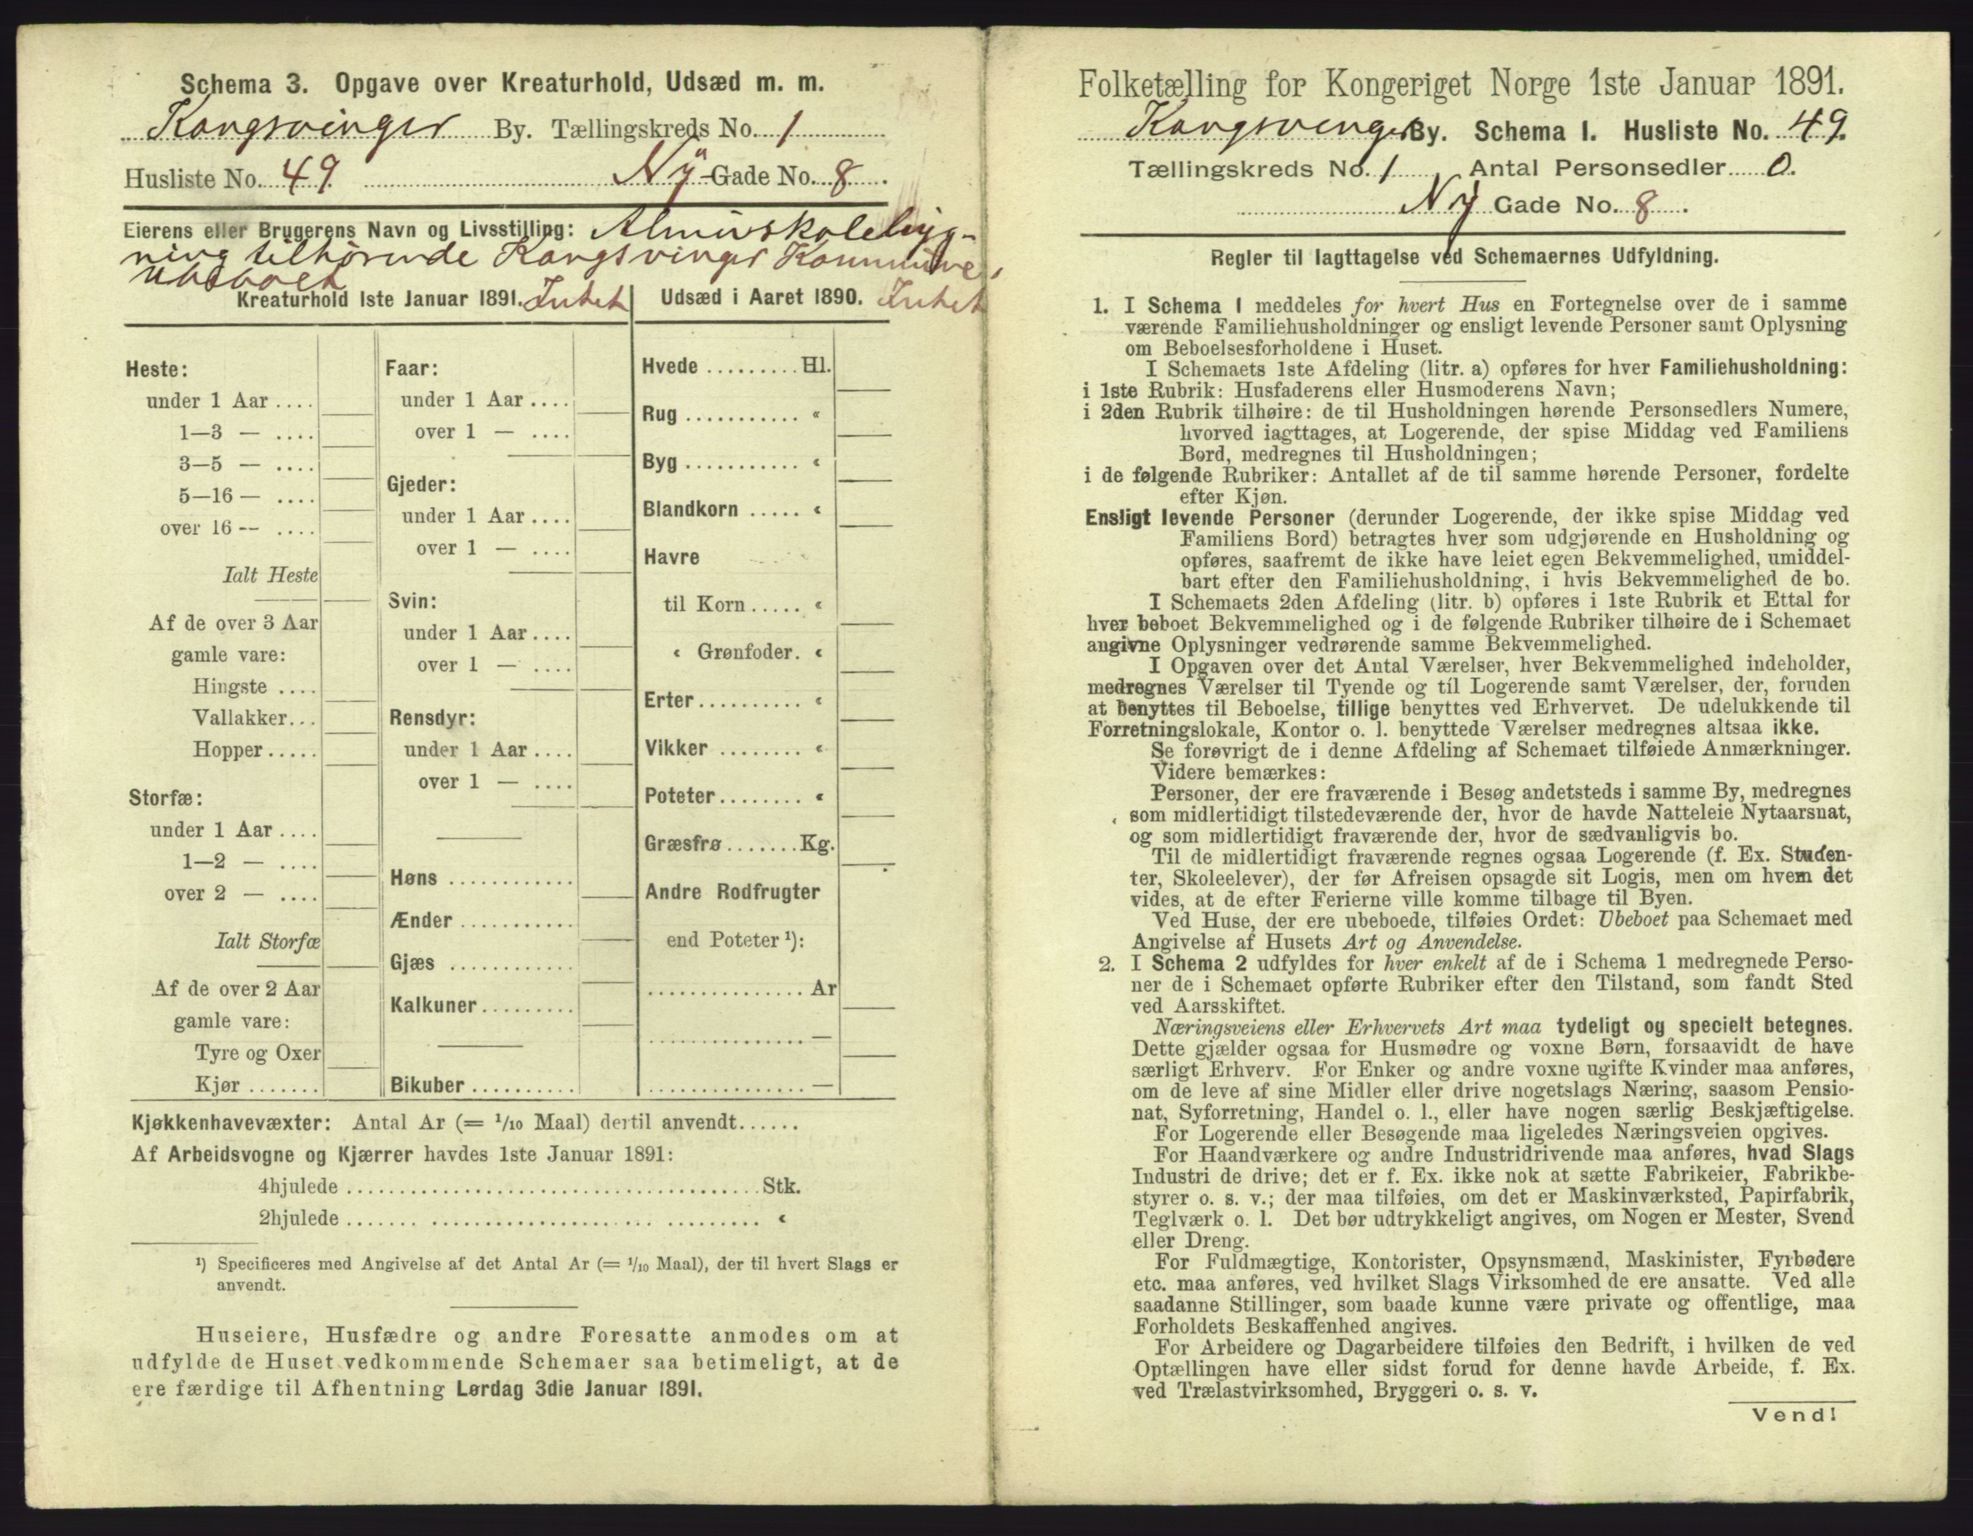 Schema 3. Opgave over Kreaturhold, Udsæd m. m.
Kongsvinger By. Tællingskreds No. 1
Husliste No. 49. Ny-Gade No. 8.
Eierens eller Brugerens Navn og Livsstilling: Almuskolebyg-
ning tilhørende Kongsvinger Kommune,
Ubeboet
Kreaturhold 1ste Januar 1891. Intet
Heste:
under 1 Aar ....
1—3 — ....
3—5 — ....
5—16 — ....
over 16 -- ....
Ialt Heste
Af de over 3 Aar
gamle vare:
Hingste ....
Vallakker...
Hopper.....
Storfæ:
under 1 Aar ....
1—2 — ....
over 2 — ....
Ialt Storfæ
Af de over 2 Aar
gamle vare:
Tyre og Oxer
Kjør .......
Faar:
under 1 Aar ....
over 1 — ....
Gjeder:
under 1 Aar ....
over 1 — ....
Svin:
under 1 Aar ....
over 1 — ....
Rensdyr:
under 1 Aar ....
over 1 — ....
Høns ...........
Ænder ..........
Gjæs ...........
Kalkuner.........
Bikuber ..........
Udsæd i Aaret 1890. Intet
Hvede .........Hl.
Rug ........... «
Byg ........... «
Blandkorn ..... «
Havre
til Korn ..... «
« Grønfoder. «
Erter.......... «
Vikker ........ «
Poteter........ «
Græsfrø.......Kg.
Andre Rodfrugter
end Poteter ¹):
............... Ar
............... —
............... —
Kjøkkenhavevæxter: Antal Ar (= 1/10 Maal) dertil anvendt......
Af Arbeidsvogne og Kjærrer havdes 1ste Januar 1891:
4hjulede ........................................Stk.
2hjulede ........................................ «
¹) Specificeres med Angivelse af det Antal Ar (= 1/10 Maal), der til hvert Slags er
anvendt.
Huseiere, Husfædre og andre Foresatte anmodes om at
udfylde de Huset vedkommende Schemaer saa betimeligt, at de
ere færdige til Afhentning Lørdag 3die Januar 1891.
Folketælling for Kongeriget Norge 1ste Januar 1891.
Kongsvinger By. Schema 1. Husliste No. 49.
Tællingskreds No. 1 Antal Personsedler 0.
Ny Gade No. 8.
Regler til Iagttagelse ved Schemaernes Udfyldning.
1. I Schema 1 meddeles for hvert Hus en Fortegnelse over de i samme
værende Familiehusholdninger og ensligt levende Personer samt Oplysning
om Beboelsesforholdene i Huset.
I Schemaets 1ste Afdeling (litr. a) opføres for hver Familiehusholdning:
i 1ste Rubrik: Husfaderens eller Husmoderens Navn;
i 2den Rubrik tilhøire: de til Husholdningen hørende Personsedlers Numere,
hvorved iagttages, at Logerende, der spise Middag ved Familiens
Bord, medregnes til Husholdningen;
i de følgende Rubriker: Antallet af de til samme hørende Personer, fordelte
efter Kjøn.
Ensligt levende Personer (derunder Logerende, der ikke spise Middag ved
Familiens Bord) betragtes hver som udgjørende en Husholdning og
opføres, saafremt de ikke have leiet egen Bekvemmelighed, umiddel-
bart efter den Familiehusholdning, i hvis Bekvemmelighed de bo.
I Schemaets 2den Afdeling (litr. b) opføres i 1ste Rubrik et Ettal for
hver beboet Bekvemmelighed og i de følgende Rubriker tilhøire de i Schemaet
angivne Oplysninger vedrørende samme Bekvemmelighed.
I Opgaven over det Antal Værelser, hver Bekvemmelighed indeholder,
medregnes Værelser til Tyende og til Logerende samt Værelser, der, foruden
at benyttes til Beboelse, tillige benyttes ved Erhvervet. De udelukkende til
Forretningslokale, Kontor o. l. benyttede Værelser medregnes altsaa ikke.
Se forøvrigt de i denne Afdeling af Schemaet tilføiede Anmærkninger.
Videre bemærkes:
Personer, der ere fraværende i Besøg andetsteds i samme By, medregnes
som midlertidigt tilstedeværende der, hvor de havde Natteleie Nytaarsnat,
og som midlertidigt fraværende der, hvor de sædvanligvis bo.
Til de midlertidigt fraværende regnes ogsaa Logerende (f. Ex. Studen-
ter, Skoleelever), der før Afreisen opsagde sit Logis, men om hvem det
vides, at de efter Ferierne ville komme tilbage til Byen.
Ved Huse, der ere ubeboede, tilføies Ordet: Ubeboet paa Schemaet med
Angivelse af Husets Art og Anvendelse.
2. I Schema 2 udfyldes for hver enkelt af de i Schema 1 medregnede Perso-
ner de i Schemaet opførte Rubriker efter den Tilstand, som fandt Sted
ved Aarsskiftet.
Næringsveiens eller Erhvervets Art maa tydeligt og specielt betegnes.
Dette gjælder ogsaa for Husmødre og voxne Børn, forsaavidt de have
særligt Erhverv. For Enker og andre voxne ugifte Kvinder maa anføres,
om de leve af sine Midler eller drive nogetslags Næring, saasom Pensio-
nat, Syforretning, Handel o. l., eller have nogen særlig Beskjæftigelse.
For Logerende eller Besøgende maa ligeledes Næringsveien opgives.
For Haandværkere og andre Industridrivende maa anføres, hvad Slags
Industri de drive; det er f. Ex. ikke nok at sætte Fabrikeier, Fabrikbe-
styrer o. s. v.; der maa tilføies, om det er Maskinværksted, Papirfabrik,
Teglværk o. l. Det bør udtrykkeligt angives, om Nogen er Mester, Svend
eller Dreng.
For Fuldmægtige, Kontorister, Opsynsmænd, Maskinister, Fyrbødere
etc. maa anføres, ved hvilket Slags Virksomhed de ere ansatte. Ved alle
saadanne Stillinger, som baade kunne være private og offentlige, maa
Forholdets Beskaffenhed angives.
For Arbeidere og Dagarbeidere tilføies den Bedrift, i hvilken de ved
Optællingen have eller sidst forud for denne havde Arbeide, f. Ex.
ved Trælastvirksomhed, Bryggeri o. s. v.
Vend!